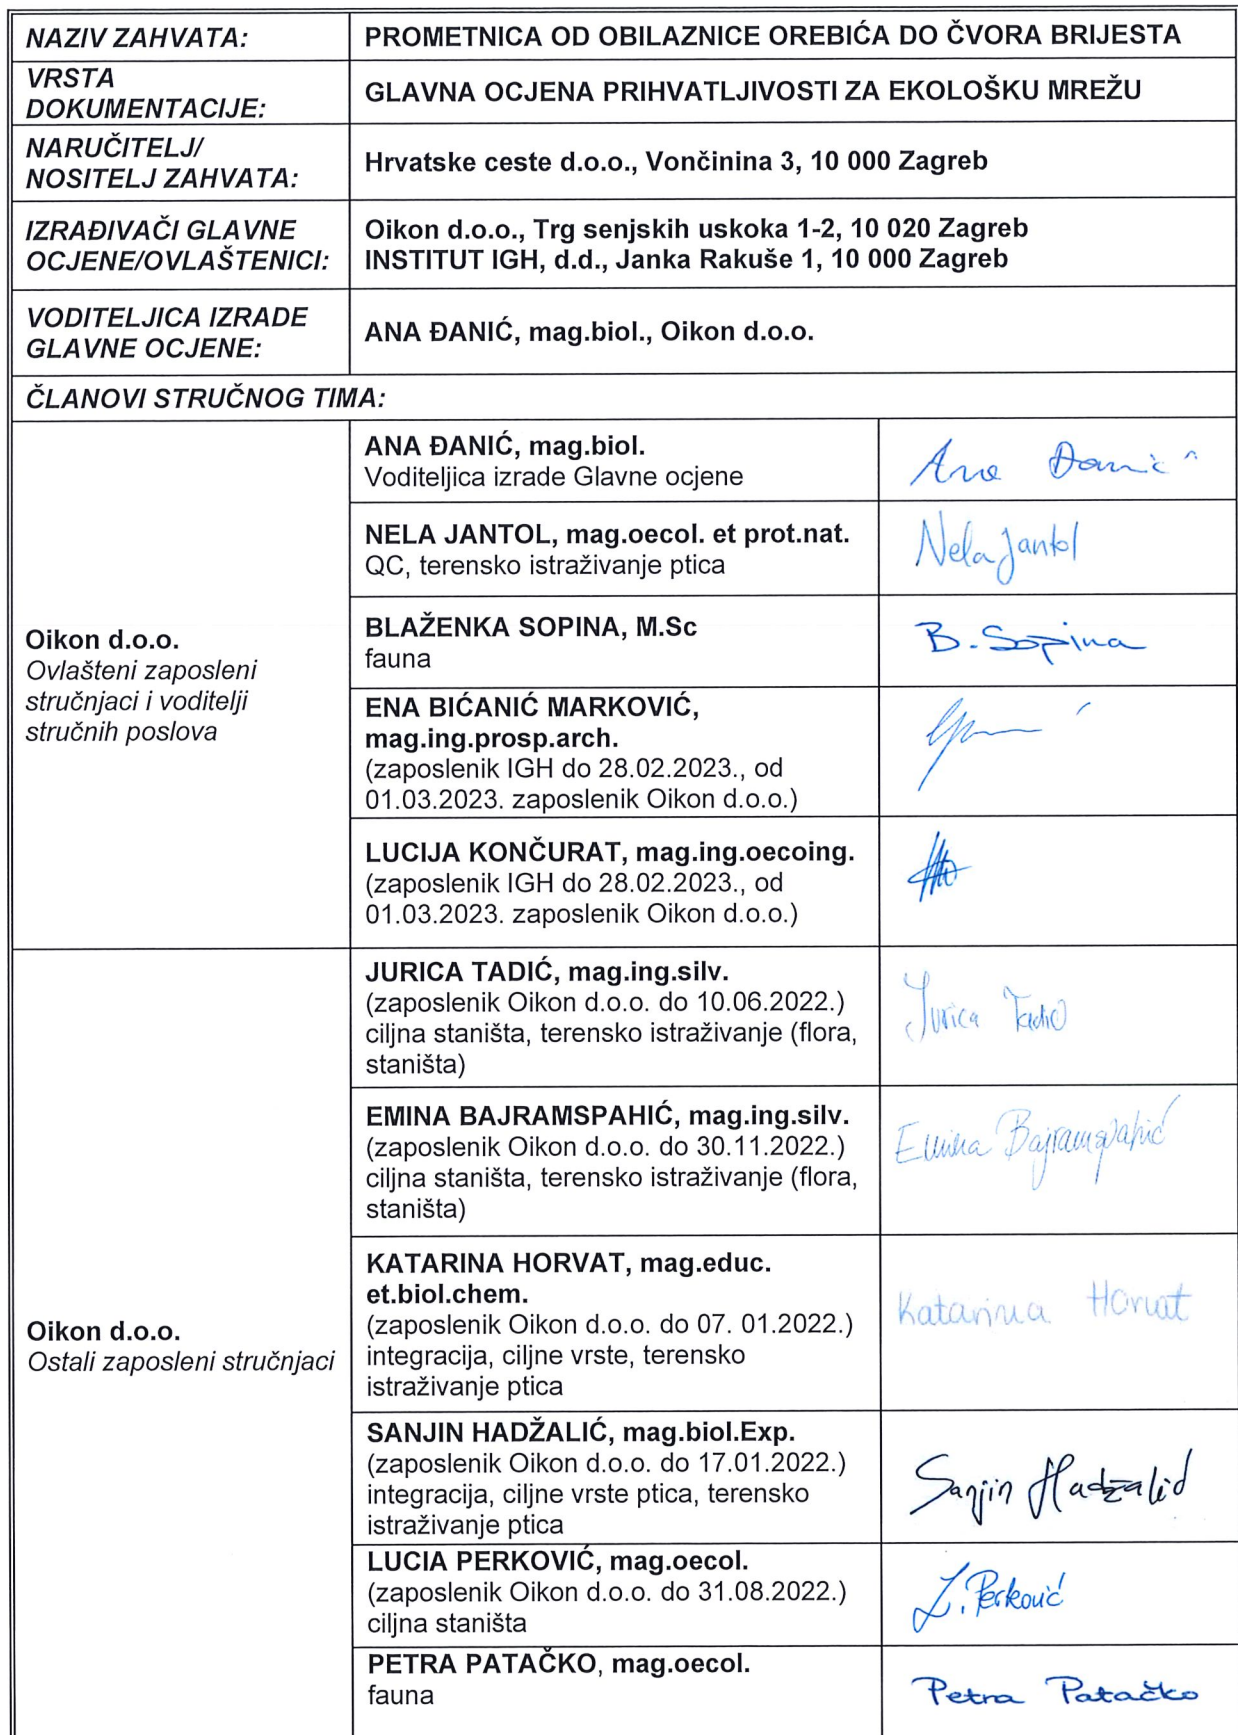 NAZIV ZAHVATA:
PROMETNICA OD OBILAZNICE OREBIĆA DO ČVORA BRIJESTA
VRSTA
DOKUMENTACIJE:
GLAVNA OCJENA PRIHVATLJIVOSTI ZA EKOLOŠKU MREŽU
NARUČITELJ/
NOSITELJ ZAHVATA:
Hrvatske ceste d.o.o., Vončinina 3, 10 000 Zagreb
IZRAĐIVAČI GLAVNE
OCJENE/OVLAŠTENICI:
Oikon d.o.o., Trg senjskih uskoka 1-2, 10 020 Zagreb
INSTITUT IGH, d.d., Janka Rakuše 1, 10 000 Zagreb
VODITELJICA IZRADE
GLAVNE OCJENE:
ANA ĐANIĆ, mag.biol., Oikon d.o.o.
ČLANOVI STRUČNOG TIMA:
Oikon d.o.o.
Ovlašteni zaposleni
stručnjaci i voditelji
stručnih poslova
ANA ĐANIĆ, mag.biol.
Voditeljica izrade Glavne ocjene
Ana Đanić
NELA JANTOL, mag.oecol. et prot.nat.
QC, terensko istraživanje ptica
Nela Jantol
BLAŽENKA SOPINA, M.Sc
fauna
B. Sopina
ENA BIĆANIĆ MARKOVIĆ,
mag.ing.prosp.arch.
(zaposlenik IGH do 28.02.2023., od
01.03.2023. zaposlenik Oikon d.o.o.)
LUCIJA KONČURAT, mag.ing.oecoing.
(zaposlenik IGH do 28.02.2023., od
01.03.2023. zaposlenik Oikon d.o.o.)
Oikon d.o.o.
Ostali zaposleni stručnjaci
JURICA TADIĆ, mag.ing.silv.
(zaposlenik Oikon d.o.o. do 10.06.2022.)
ciljna staništa, terensko istraživanje (flora,
staništa)
Jurica Tadić
EMINA BAJRAMSPAHIĆ, mag.ing.silv.
(zaposlenik Oikon d.o.o. do 30.11.2022.)
ciljna staništa, terensko istraživanje (flora,
staništa)
Emina Bajramspahić
KATARINA HORVAT, mag.educ.
et.biol.chem.
(zaposlenik Oikon d.o.o. do 07. 01.2022.)
integracija, ciljne vrste, terensko
istraživanje ptica
Katarina Horvat
SANJIN HADŽALIĆ, mag.biol.Exp.
(zaposlenik Oikon d.o.o. do 17.01.2022.)
integracija, ciljne vrste ptica, terensko
istraživanje ptica
Sanjin Hadžalić
LUCIA PERKOVIĆ, mag.oecol.
(zaposlenik Oikon d.o.o. do 31.08.2022.)
ciljna staništa
L. Perković
PETRA PATAČKO, mag.oecol.
fauna
Petra Patačko